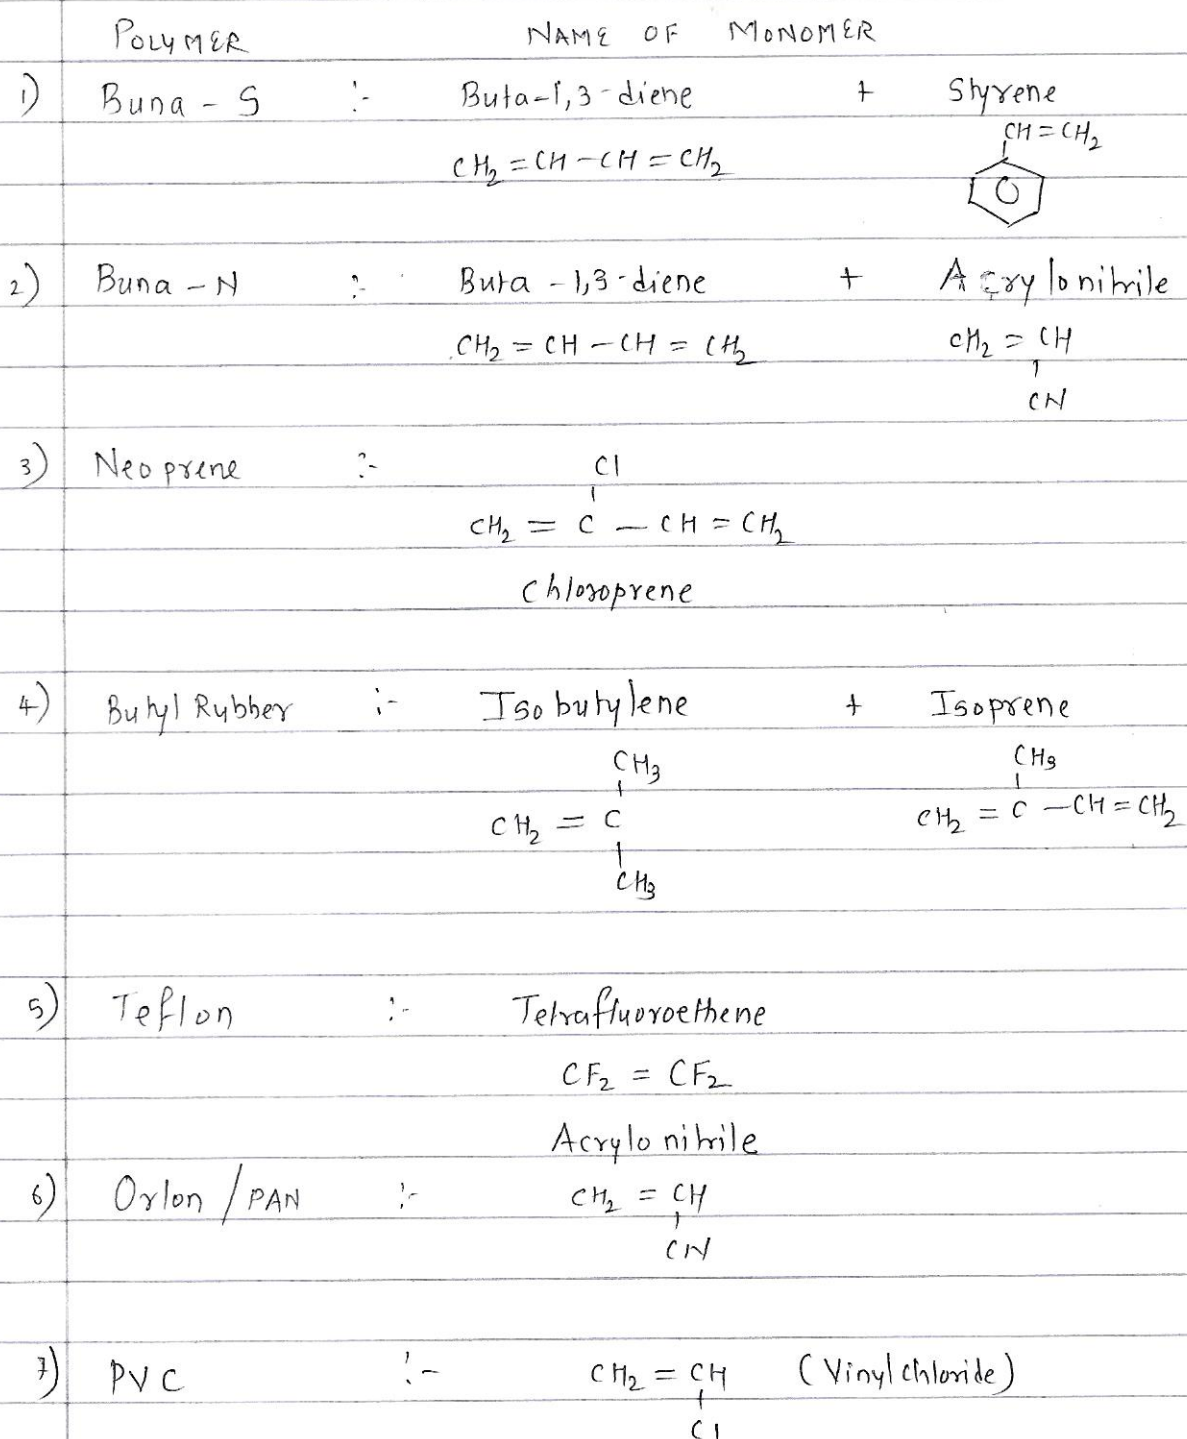 POLYMER NAME OF MONOMER
1) Buna - S :- Buta-1,3-diene + Styrene
CH=CH2
CH2 = CH - CH = CH2
2) Buna - N :- Buta - 1,3-diene + Acrylonitrile
CH2 = CH - CH = CH2 CH2 = CH
CN
3) Neoprene :- Cl
CH2 = C - CH = CH2
Chloroprene
4) Butyl Rubber :- Isobutylene + Isoprene
CH3 CH3
CH2 = C CH2 = C - CH = CH2
CH3
5) Teflon :- Tetrafluoroethene
CF2 = CF2
Acrylonitrile
6) Orlon / PAN :- CH2 = CH
CN
7) PVC :- CH2 = CH (Vinyl chloride)
Cl